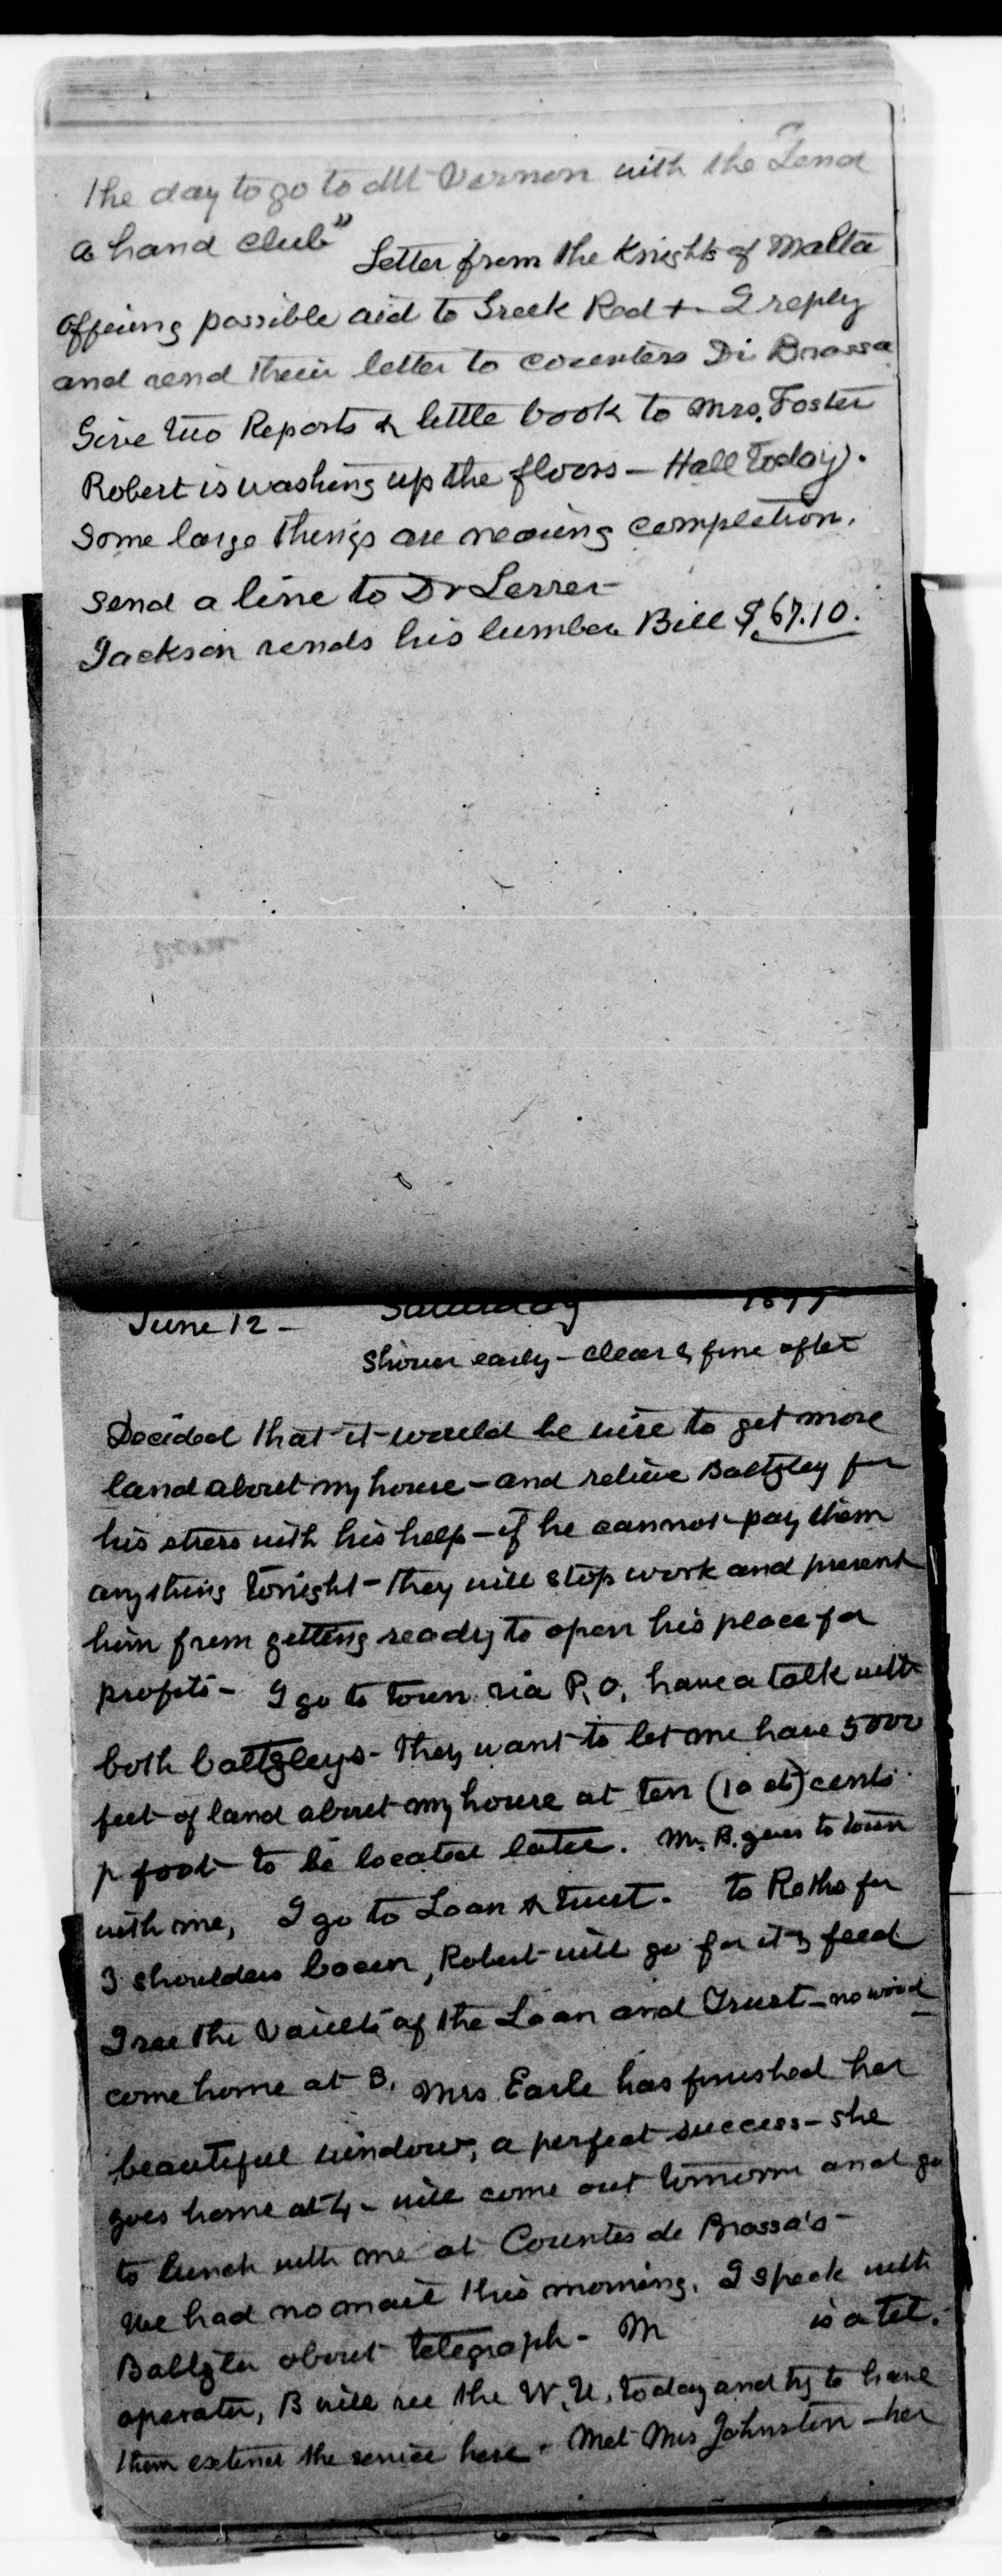 the day to go to Mt Vernon with the "Lend
a hand club"
Letter from the Knights of Malta
offering possible aid to Greek Red +. I reply
and send their letter to countess Di Brassa
Give two Reports & little book to Mrs. Foster
Robert is washing up the floors - Hall today.
Some large things are nearing completion.
send a line to Dr Lesser -
Jackson sends his lumber Bill $67.10.
June 12 - Saturday 1897
Shower early - clear & fine after
Decided that it would be wise to get more
land about my house - and relieve Baltzley for
his stress with his help - if he cannot pay them
anything tonight - they will stop work and prevent
him from getting ready to open his place for
profits - I go to town via P.O. have a talk with
both baltzleys - they want to let me have 5000
feet of land about my house at ten (10 ct) cents
p foot to be located later. Mr. B. goes to town
with me, I go to Loan & trust. to Roths for
3 shoulders bacon, Robert will go for it & feed
I see the vaults of the Loan and Trust - no wood
come home at 3. Mrs Earle has finished her
beautiful window, a perfect success - she
goes home at 4 - will come out tomorrow and go
to lunch with me at Countes de Brassa's -
We had no mail this morning. I speak with
Baltzley about telegraph - M is a tel.
operator, B will see the W. U. today and try to have
them extend the service here - Met Mrs Johnston - her